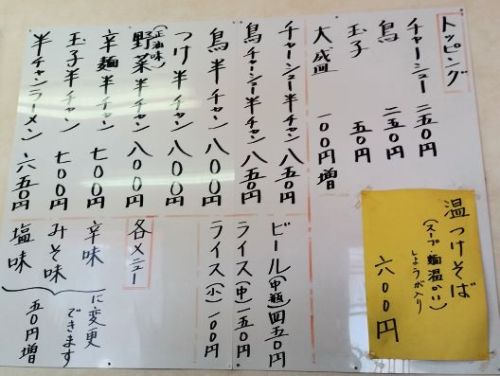 トッピング
チャーシュー 二五〇円
鳥 二五〇円
玉子 五〇円
大盛 一〇〇円増
チャーシュー半チャン 八五〇円
鳥チャーシュー半チャン 八五〇円
鳥半チャン 八〇〇円
つけ半チャン 八〇〇円
(正油味)
野菜半チャン 八〇〇円
辛麺半チャン 七〇〇円
玉子半チャン 七〇〇円
半チャンラーメン 六五〇円
温つけそば
(スープ・麺温かい)
しょうが入り
六〇〇円
ビール(中瓶) 四五〇円
ライス(中) 一五〇円
ライス(小) 一〇〇円
各メニュー
辛味
みそ味
塩味
に変更
できます
五〇円増